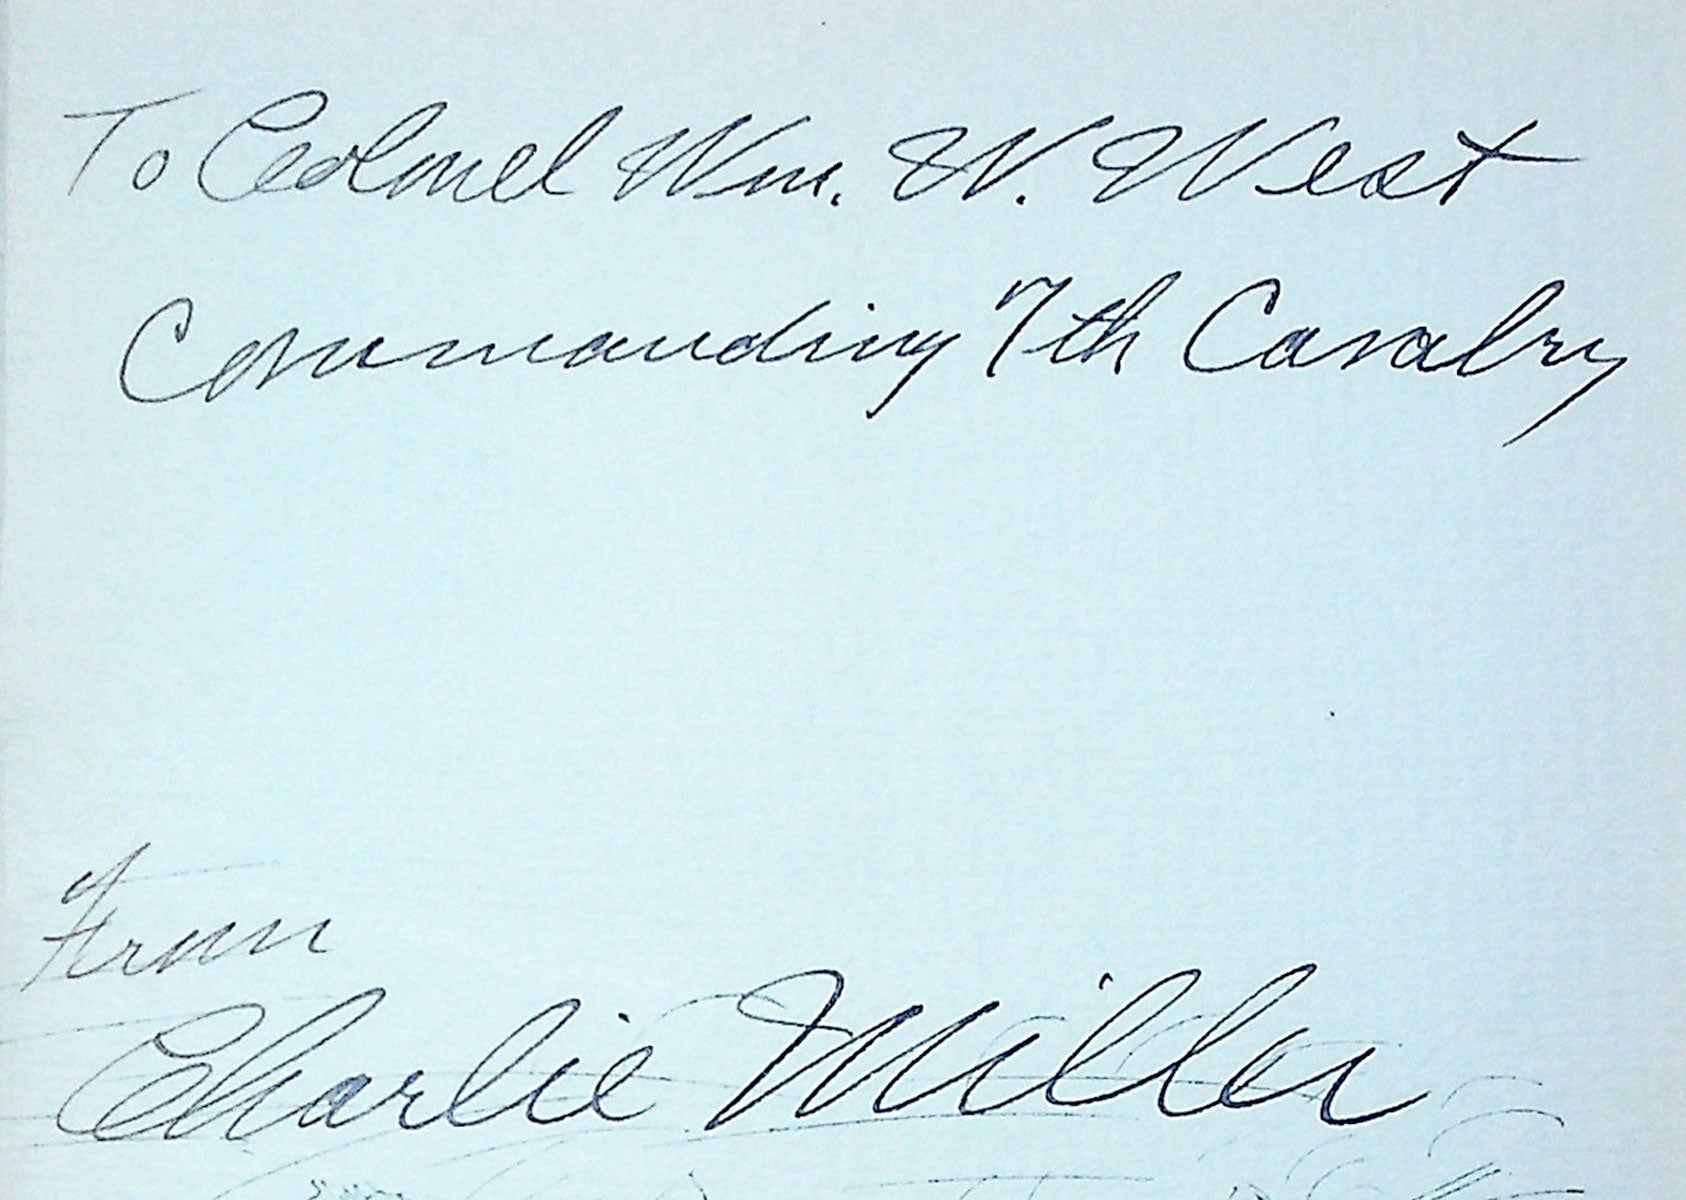 To Colonel Wm. W. West
Commanding 7th Cavalry
From
Charlie Miller